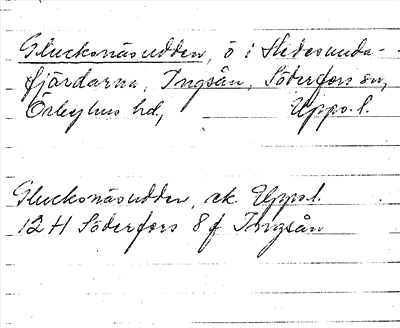 Glucksnäsudden, ö i Hedesunda-
fjärdarna, Ingsån, Söderfors sn,
Örbyhus hd, Upps. l.
Glucksnäsudden, ek. Upps. l.
12 H Söderfors 8 f Ingsån